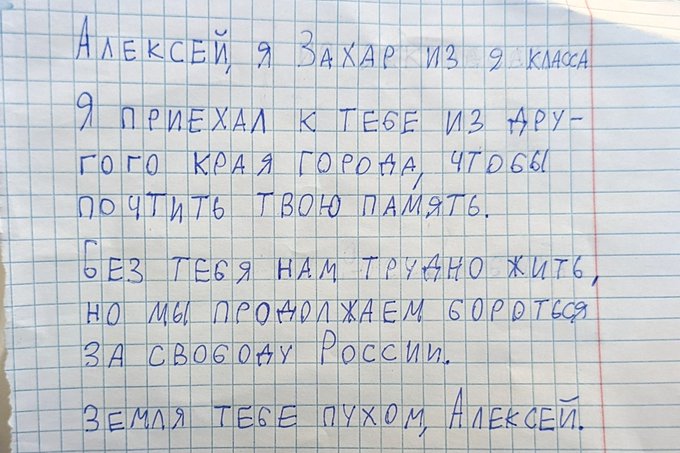 Алексей, я Захар из 9 класса
Я приехал к тебе из дру-
гого края города, чтобы
почтить твою память.
Без тебя нам трудно жить,
но мы продолжаем бороться
за свободу России.
Земля тебе пухом, Алексей.